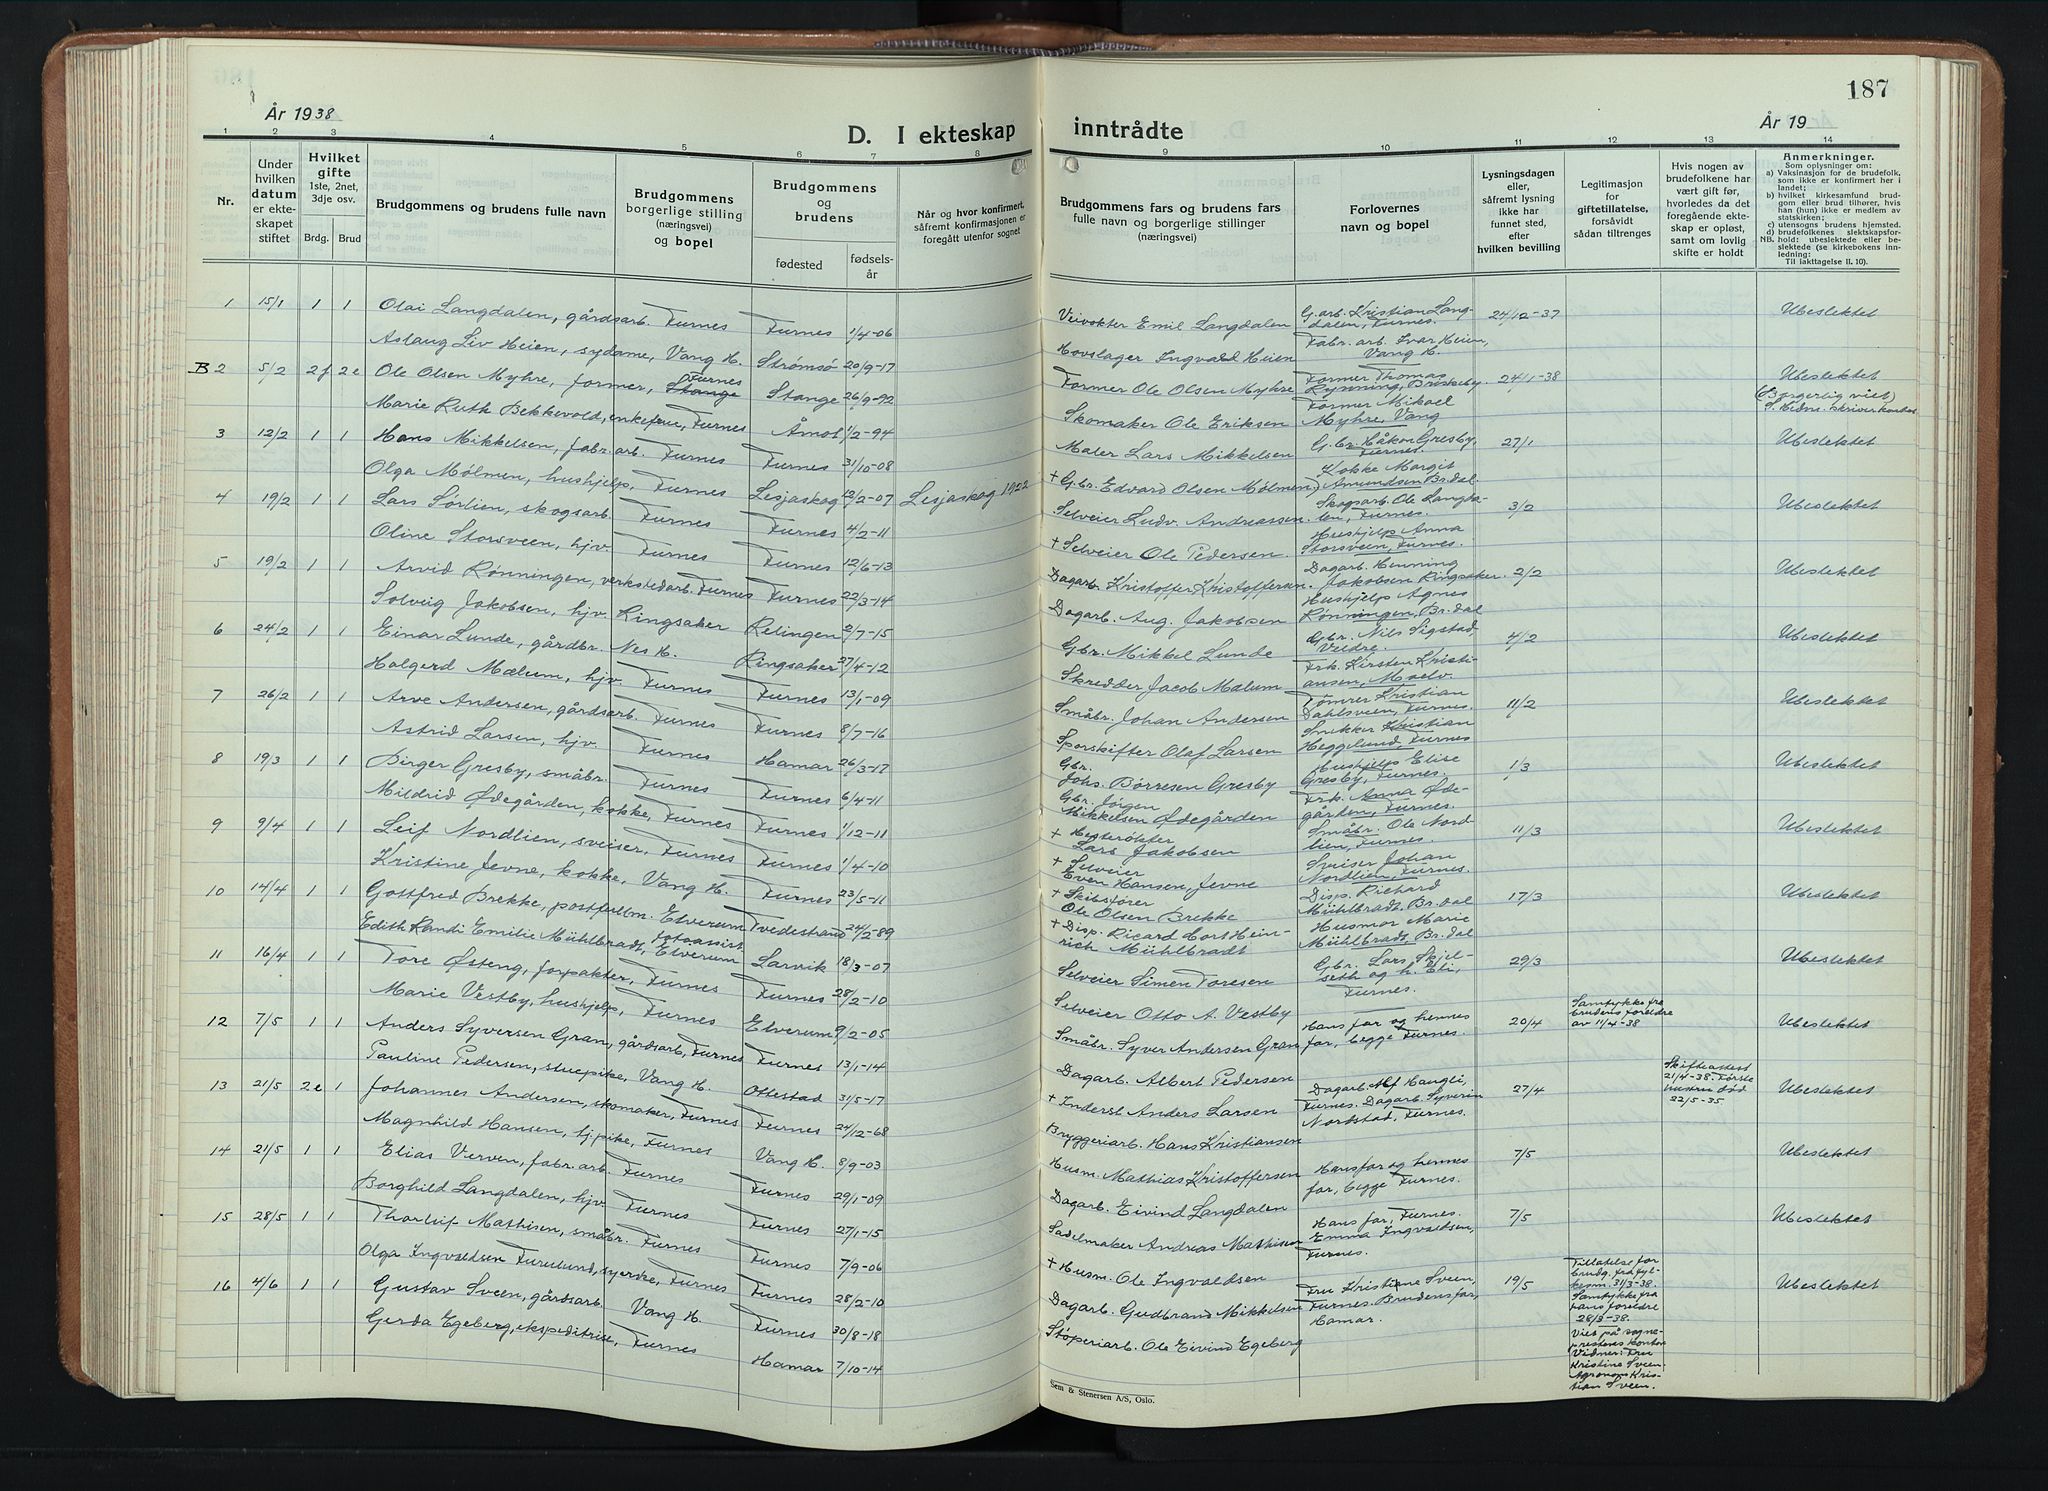 187
År 1938
D. I ekteskap inntrådte
År 19
1 2 3 4 5 6 7 8 9 10 11 12 13 14
Nr.
Under hvilken datum er ekteskapet stiftet
Hvilket gifte
1ste, 2net, 3dje osv.
Brdg. Brud
Brudgommens og brudens fulle navn
Brudgommens borgerlige stilling (næringsvei) og bopel
Brudgommens og brudens
fødested
fødselsår
Når og hvor konfirmert, såfremt konfirmasjonen er foregått utenfor sognet
Brudgommens fars og brudens fars fulle navn og borgerlige stillinger (næringsvei)
Forlovernes navn og bopel
Lysningsdagen eller, såfremt lysning ikke har funnet sted, efter hvilken bevilling
Legitimasjon for giftetillatelse, forsåvidt sådan tiltrenges
Hvis nogen av brudefolkene har vært gift før, hvorledes da det foregående ekteskap er opløst, samt om lovlig skifte er holdt
Anmerkninger.
Som oplysninger om:
a) Vaksinasjon for de brudefolk, som ikke er konfirmert her i landet;
b) hvilket kirkesamfund brudgom eller brud tilhører, hvis han (hun) ikke er medlem av statskirken;
c) utensogns brudens hjemsted.
d) brudefolkenes slektskapsforhold: ubeslektede eller beslektede (se kirkebokens innledning:
NB. Til iakttagelse II. 10).
1 15/1 1 1 Olai Langdalen, gårdsarb. Furnes Furnes 1/4-06 Veivokter Emil Langdalen G.arb. Kristian Langdalen, Furnes. 24/12-37 Ubeslektet
Aslaug Liv Heien, sydame, Vang H. Strømsø 20/9-17 Hovslager Ingvald Heien Fabr.arb. Ivar Heien, Vang H.
B 2 5/2 2f 2e Ole Olsen Myhre, former, Stange Furnes Stange 26/9-92 Former Ole Olsen Myhre Former Thomas Rynning, Briskeby. 24/1-38 Ubeslektet
Marie Ruth Bekkevold, enkefrue, Furnes Åmot 1/2-94 Skomaker Ole Eriksen Former Mikael Myhre, Vang (Borgerlig viet)
3 12/2 1 1 Hans Mikkelsen, fabr.arb. Furnes Furnes 31/10-08 Maler Lars Mikkelsen G.br. Håkon Gresby, Furnes. 27/1 Ubeslektet
Olga Mølmen, hushjelp, Furnes Lesjaskog 12/2-07 Lesjaskog 1922 + G.br. Edvard Olsen Mølmen Kokke Margit Amundsen Br.dal
4 19/2 1 1 Lars Sørlien, skogsarb. Furnes Furnes 4/2-11 Selveier Ludv. Andreassen Skogsarb. Ole Langdalen, Furnes. 3/2 Ubeslektet
Oline Storsveen, hjv. Furnes Furnes 12/6-13 + Selveier Ole Pedersen Hushjelp Anna Storsveen, Furnes.
5 19/2 1 1 Arvid Rønningen, verkstedarb. Furnes Furnes 22/3-14 Dagarb. Kristoffer Kristoffersen. Dagarb. Henning Jakobsen Ringsaker. 2/2 Ubeslektet
Solveig Jakobsen, hjv. Ringsaker Relingen 2/7-15 Dagarb. Aug. Jakobsen Hushjelp Agnes Rønningen, Br.dal
6 24/2 1 1 Einar Lunde, gårdbr. Nes H. Ringsaker 27/4-12 Gbr. Mikkel Lunde Gbr. Nils Sigstad, Veldre. 4/2 Ubeslektet
Halgerd Mælum, hjv. Furnes Furnes 13/1-09 Skredder Jacob Mælum Frk. Kirsten Kristiansen, Moelv
7 26/2 1 1 Arve Andersen, gårdsarb. Furnes Furnes 8/7-16 Småbr. Johan Andersen Tømrer Kristian Dahlsveen, Furnes. 11/2 Ubeslektet
Astrid Larsen, hjv. Furnes Hamar 26/3-17 Sporskifter Olaf Larsen Snekker Kristian Heggelund, Furnes
8 19/3 1 1 Birger Gresby, småbr. Furnes Furnes 6/4-11 Gbr. Johs. Børresen Gresby Hushjelp Elise Gresby, Furnes. 1/3 Ubeslektet
Mildrid Ødegården, kokke, Furnes Furnes 1/12-11 Gbr. Jørgen Mikkelsen Ødegården Frk. Anna Ødegården, Furnes.
9 9/4 1 1 Leif Nordlien, sveiser, Furnes Furnes 1/4-10 + Hesterøkter Lars Jakobsen Småbr. Ole Nordlien, Furnes. 11/3 Ubeslektet
Kristine Jevne, kokke, Vang H. Furnes 23/5-11 + Selveier Even Hansen, Jevne Sveiser Johan Nordlien, Furnes.
10 14/4 1 1 Gottfred Brekke, postfullm. Elverum Tvedestrand 24/2-89 + Skibsfører Ole Olsen Brekke Disp. Richard Mühlbradt, Br.dal 17/3 Ubeslektet
Edith Randi Emilie Mühlbradt, fotoassist Elverum Larvik 18/3-07 + Disp. Ricard Cort Heinrich Mühlbradt Husmor Marie Mühlbradt, Br.dal
11 16/4 1 1 Tore Østeng, forpakter, Furnes Furnes 28/2-10 Selveier Simen Toresen Gbr. Lars Skjelseth og h. Eli, Furnes. 29/3 Ubeslektet
Marie Vestby, hushjelp, Furnes Elverum 9/2-05 Selveier Otto A. Vestby
12 7/5 1 1 Anders Syversen Gran, gårdsarb, Furnes Furnes 13/1-14 Småbr. Syver Andersen Gran Hans far og hennes far, begge Furnes. 20/4 Samtykke fra brudens foreldre av 11/4-38 Ubeslektet
Pauline Pedersen, stuepike, Vang H. Ottestad 31/5-17 Dagarb. Albert Pedersen
13 21/5 2e 1 Johannes Andersen, skomaker, Furnes Furnes 24/12-68 + Inderst Anders Larsen Dagarb. Alf Haugli, Furnes. Dagarb. Syverin Nordstad, Furnes. 27/4 Skifteattest 21/4-38. Første hustru død 22/5-35 Ubeslektet
Magnhild Hansen, hj.pike, Furnes Vang H. 8/9-03 Bryggeriarb. Hans Kristiansen
14 21/5 1 1 Elias Verven, fabr.arb. Furnes Furnes 29/1-09 Husm. Mathias Kristoffersen Hans far og hennes far, begge Furnes. 7/5 Ubeslektet
Borghild Langdalen, hjv. Furnes Furnes 27/1-15 Dagarb. Eivind Langdalen
15 28/5 1 1 Thorleif Mathisen, småbr. Furnes Furnes 7/9-06 Sadelmaker Andreas Mathisen Hans far, Furnes. Emma Ingvaldsen, Furnes. 7/5 Ubeslektet
Olga Ingvaldsen Furulund, syerske, Furnes Furnes 28/2-10 + Husm. Ole Ingvaldsen
16 4/6 1 1 Gustav Sveen, gårdsarb. Vang H. Furnes 30/8-18 Dagarb. Gudbrand Mikkelsen Fru Kristiane Sveen, Furnes. Brudens far, Hamar. 19/5 Tillatelse for brudg. fra fylkesm. 31/3-38. Samtykke fra hans foreldre 28/3-38. Viet på sogneprestens kontor Vidner: Fru Kristine Sveen. Agronom Kristian Sveen. Ubeslektet
Gerda Egeberg, ekspeditrise, Furnes Hamar 7/10-14 Støperiarb. Ole Eivind Egeberg
Sem & Stenersen A/S, Oslo.